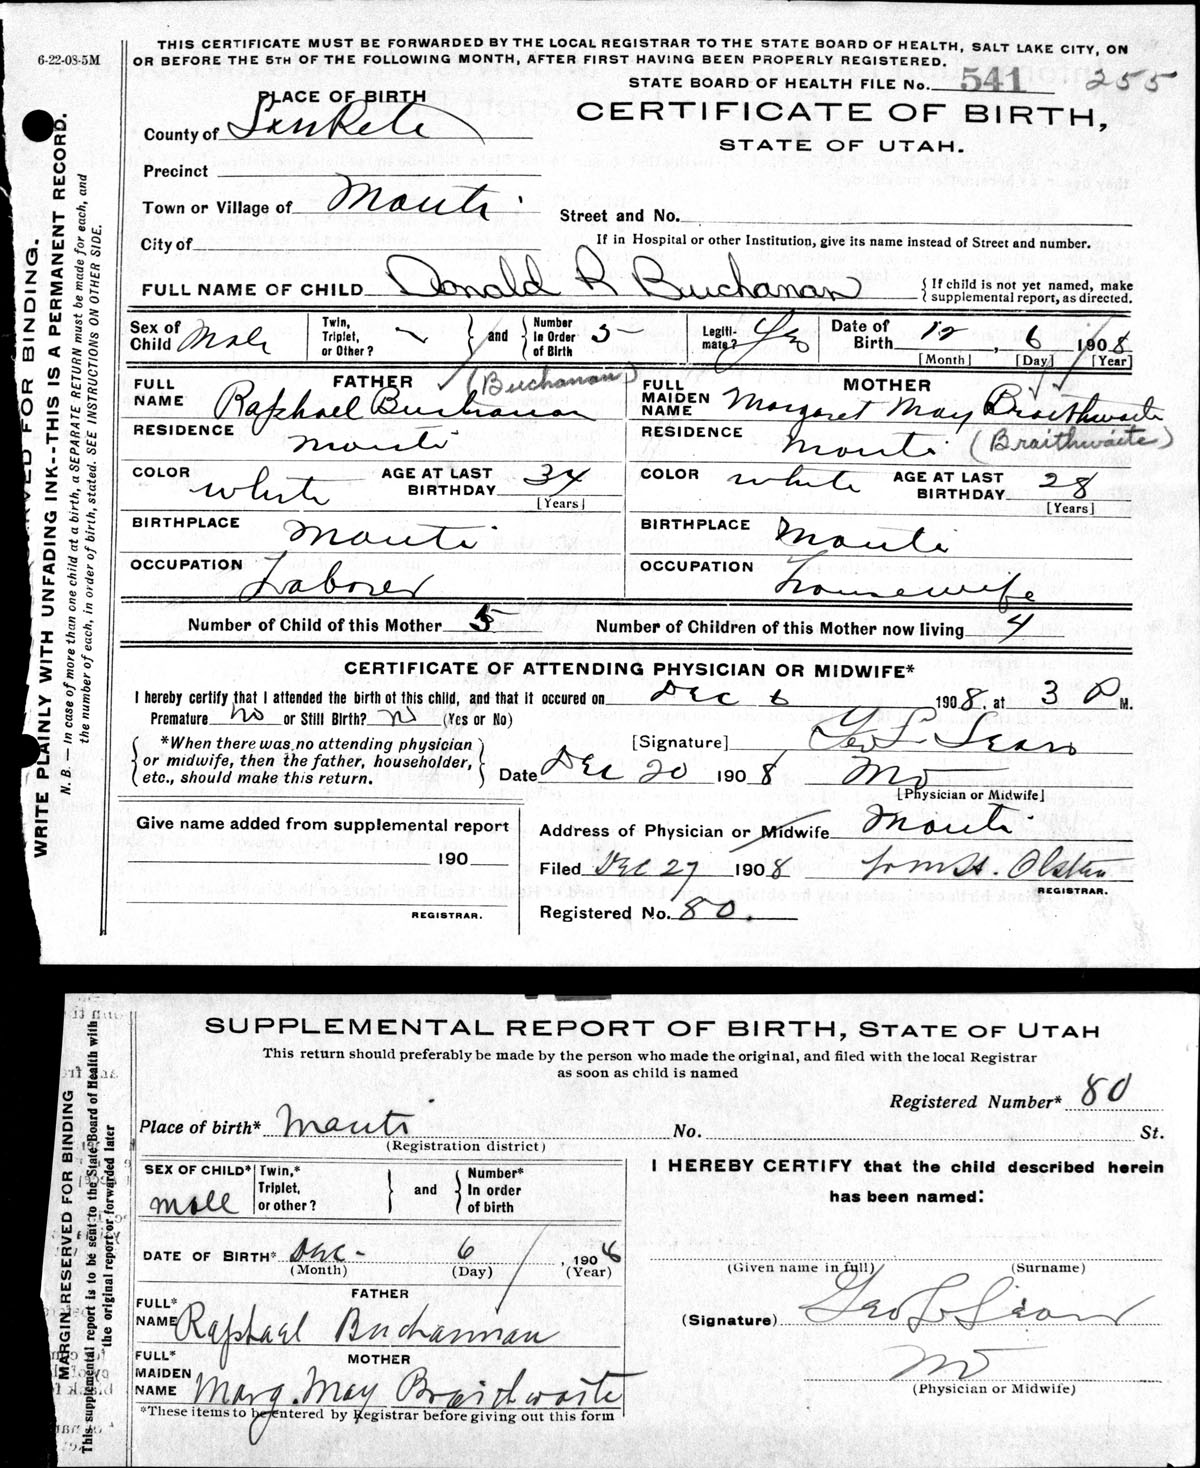 6-22-08-5M
THIS CERTIFICATE MUST BE FORWARDED BY THE LOCAL REGISTRAR TO THE STATE BOARD OF HEALTH, SALT LAKE CITY, ON
OR BEFORE THE 5TH OF THE FOLLOWING MONTH, AFTER FIRST HAVING BEEN PROPERLY REGISTERED.
STATE BOARD OF HEALTH FILE No. 541 255
PLACE OF BIRTH
CERTIFICATE OF BIRTH,
STATE OF UTAH.
County of SanPete
Precinct
Town or Village of Manti
Street and No.
City of
If in Hospital or other Institution, give its name instead of Street and number.
FULL NAME OF CHILD Donald R Buchanan
{If child is not yet named, make
supplemental report, as directed.
Sex of Child Male
Twin, Triplet, or Other?
} and {
Number in Order of Birth 5
Legiti-mate? Yes
Date of Birth 12, 6 1908
[Month] [Day] [Year]
FATHER
FULL NAME Raphael Buchanan (Buchanan)
RESIDENCE Manti
COLOR white
AGE AT LAST BIRTHDAY 34
[Years]
BIRTHPLACE Manti
OCCUPATION Laborer
MOTHER
FULL MAIDEN NAME Margaret May Braithwaite
RESIDENCE Manti (Braithwaite)
COLOR white
AGE AT LAST BIRTHDAY 28
[Years]
BIRTHPLACE Manti
OCCUPATION Housewife
Number of Child of this Mother 5
Number of Children of this Mother now living 4
CERTIFICATE OF ATTENDING PHYSICIAN OR MIDWIFE*
I hereby certify that I attended the birth of this child, and that it occured on Dec 6 1908. at 3 P M.
Premature no or Still Birth? no (Yes or No)
{*When there was no attending physician
or midwife, then the father, householder,
etc., should make this return.}
[Signature] Geo L Sears
Date Dec 20 1908 MD
[Physician or Midwife]
Give name added from supplemental report
190
REGISTRAR.
Address of Physician or Midwife Manti
Filed Dec 27 1908 Olsten
REGISTRAR.
Registered No. 80.
WRITE PLAINLY WITH UNFADING INK--THIS IS A PERMANENT RECORD.
N. B. — In case of more than one child at a birth, a SEPARATE RETURN must be made for each, and
the number of each, in order of birth, stated. SEE INSTRUCTIONS ON OTHER SIDE.
SUPPLEMENTAL REPORT OF BIRTH, STATE OF UTAH
This return should preferably be made by the person who made the original, and filed with the local Registrar
as soon as child is named
Registered Number* 80
Place of birth* Manti No. St.
(Registration district)
SEX OF CHILD* Male
Twin,* Triplet, or other?
} and {
Number* In order of birth
DATE OF BIRTH* Dec- 6, 1908
(Month) (Day) (Year)
FATHER
FULL* NAME Raphael Buchannan
MOTHER
FULL* MAIDEN NAME Marg. May Braidwaite
*These items to be entered by Registrar before giving out this form
I HEREBY CERTIFY that the child described herein
has been named:
(Given name in full) (Surname)
(Signature) Geo L Sears
MD
(Physician or Midwife)
MARGIN RESERVED FOR BINDING
This supplemental report is to be sent to the State Board of Health with
the original report or forwarded later